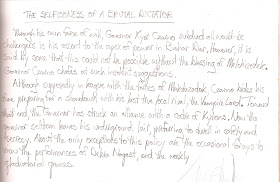 THE SELFISHNESS OF A BRUTAL DICTATOR
Through his own force of will, Governor Kyst Cosmo subdued all would-be
challengers in his ascent to the apex of power in Harbor War. However, it is
said by some that this could not be possible without the blessing of
Governor Cosmo chafes at such insolent suggestions.
Although supposedly in league with the forces of Cosmo bides his
time, preparing for a showdown with his the local rival, the Vampire Lord. Toward
that end the Governor has struck an alliance with a cadre of Now the
governor seldom leaves his underground lair, preferring to dwell in safety and
secrecy. About the only exceptions to this policy are the occasional forays to
view the performances of and the weekly
gladiatorial games.